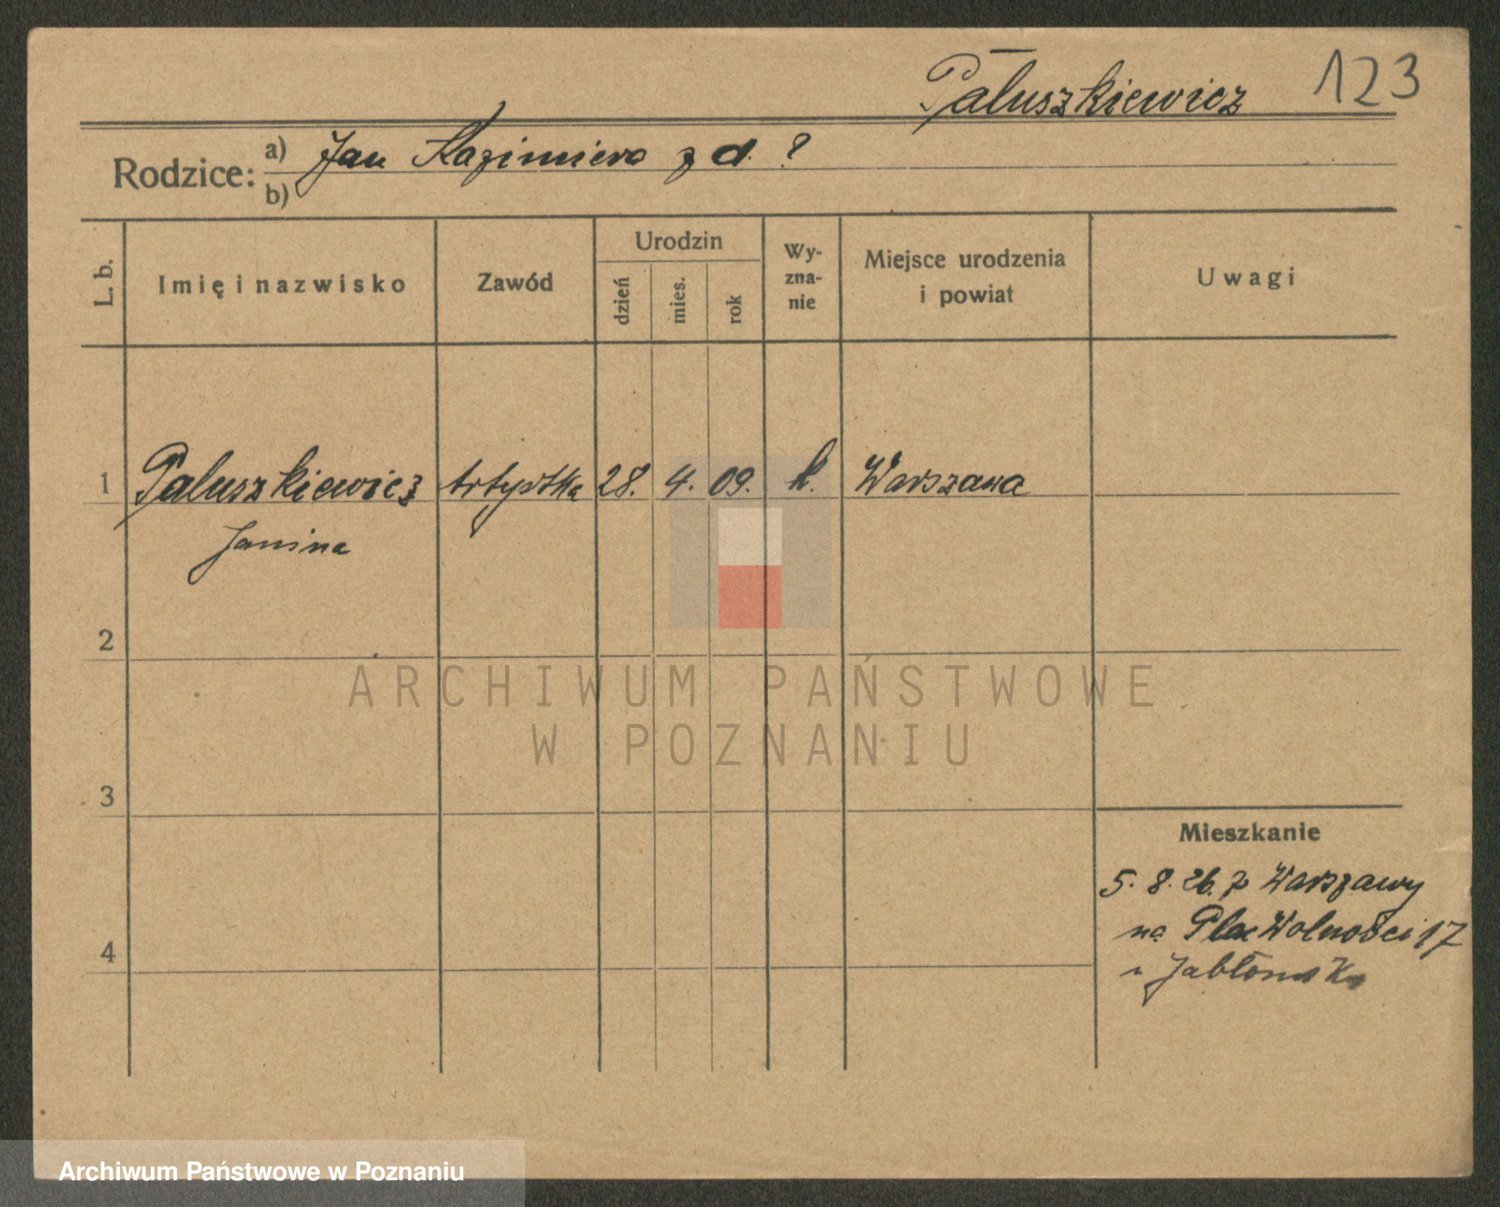 Pałuszkiewicz 123
Rodzice: a) Jan Kazimiera z d. ?
b)
L. b. Imię i nazwisko Zawód Urodzin dzień mies. rok Wy-
zna-
nie Miejsce urodzenia
i powiat Uwagi
1 Paluszkiewicz Artystka 28. 4. 09. k. Warszawa
Janina
2
ARCHIWUM PAŃSTWOWE
W POZNANIU
3
Mieszkanie
5. 8. 26. z Warszawy
na Plac Wolności 17
4
Archiwum Państwowe w Poznaniu